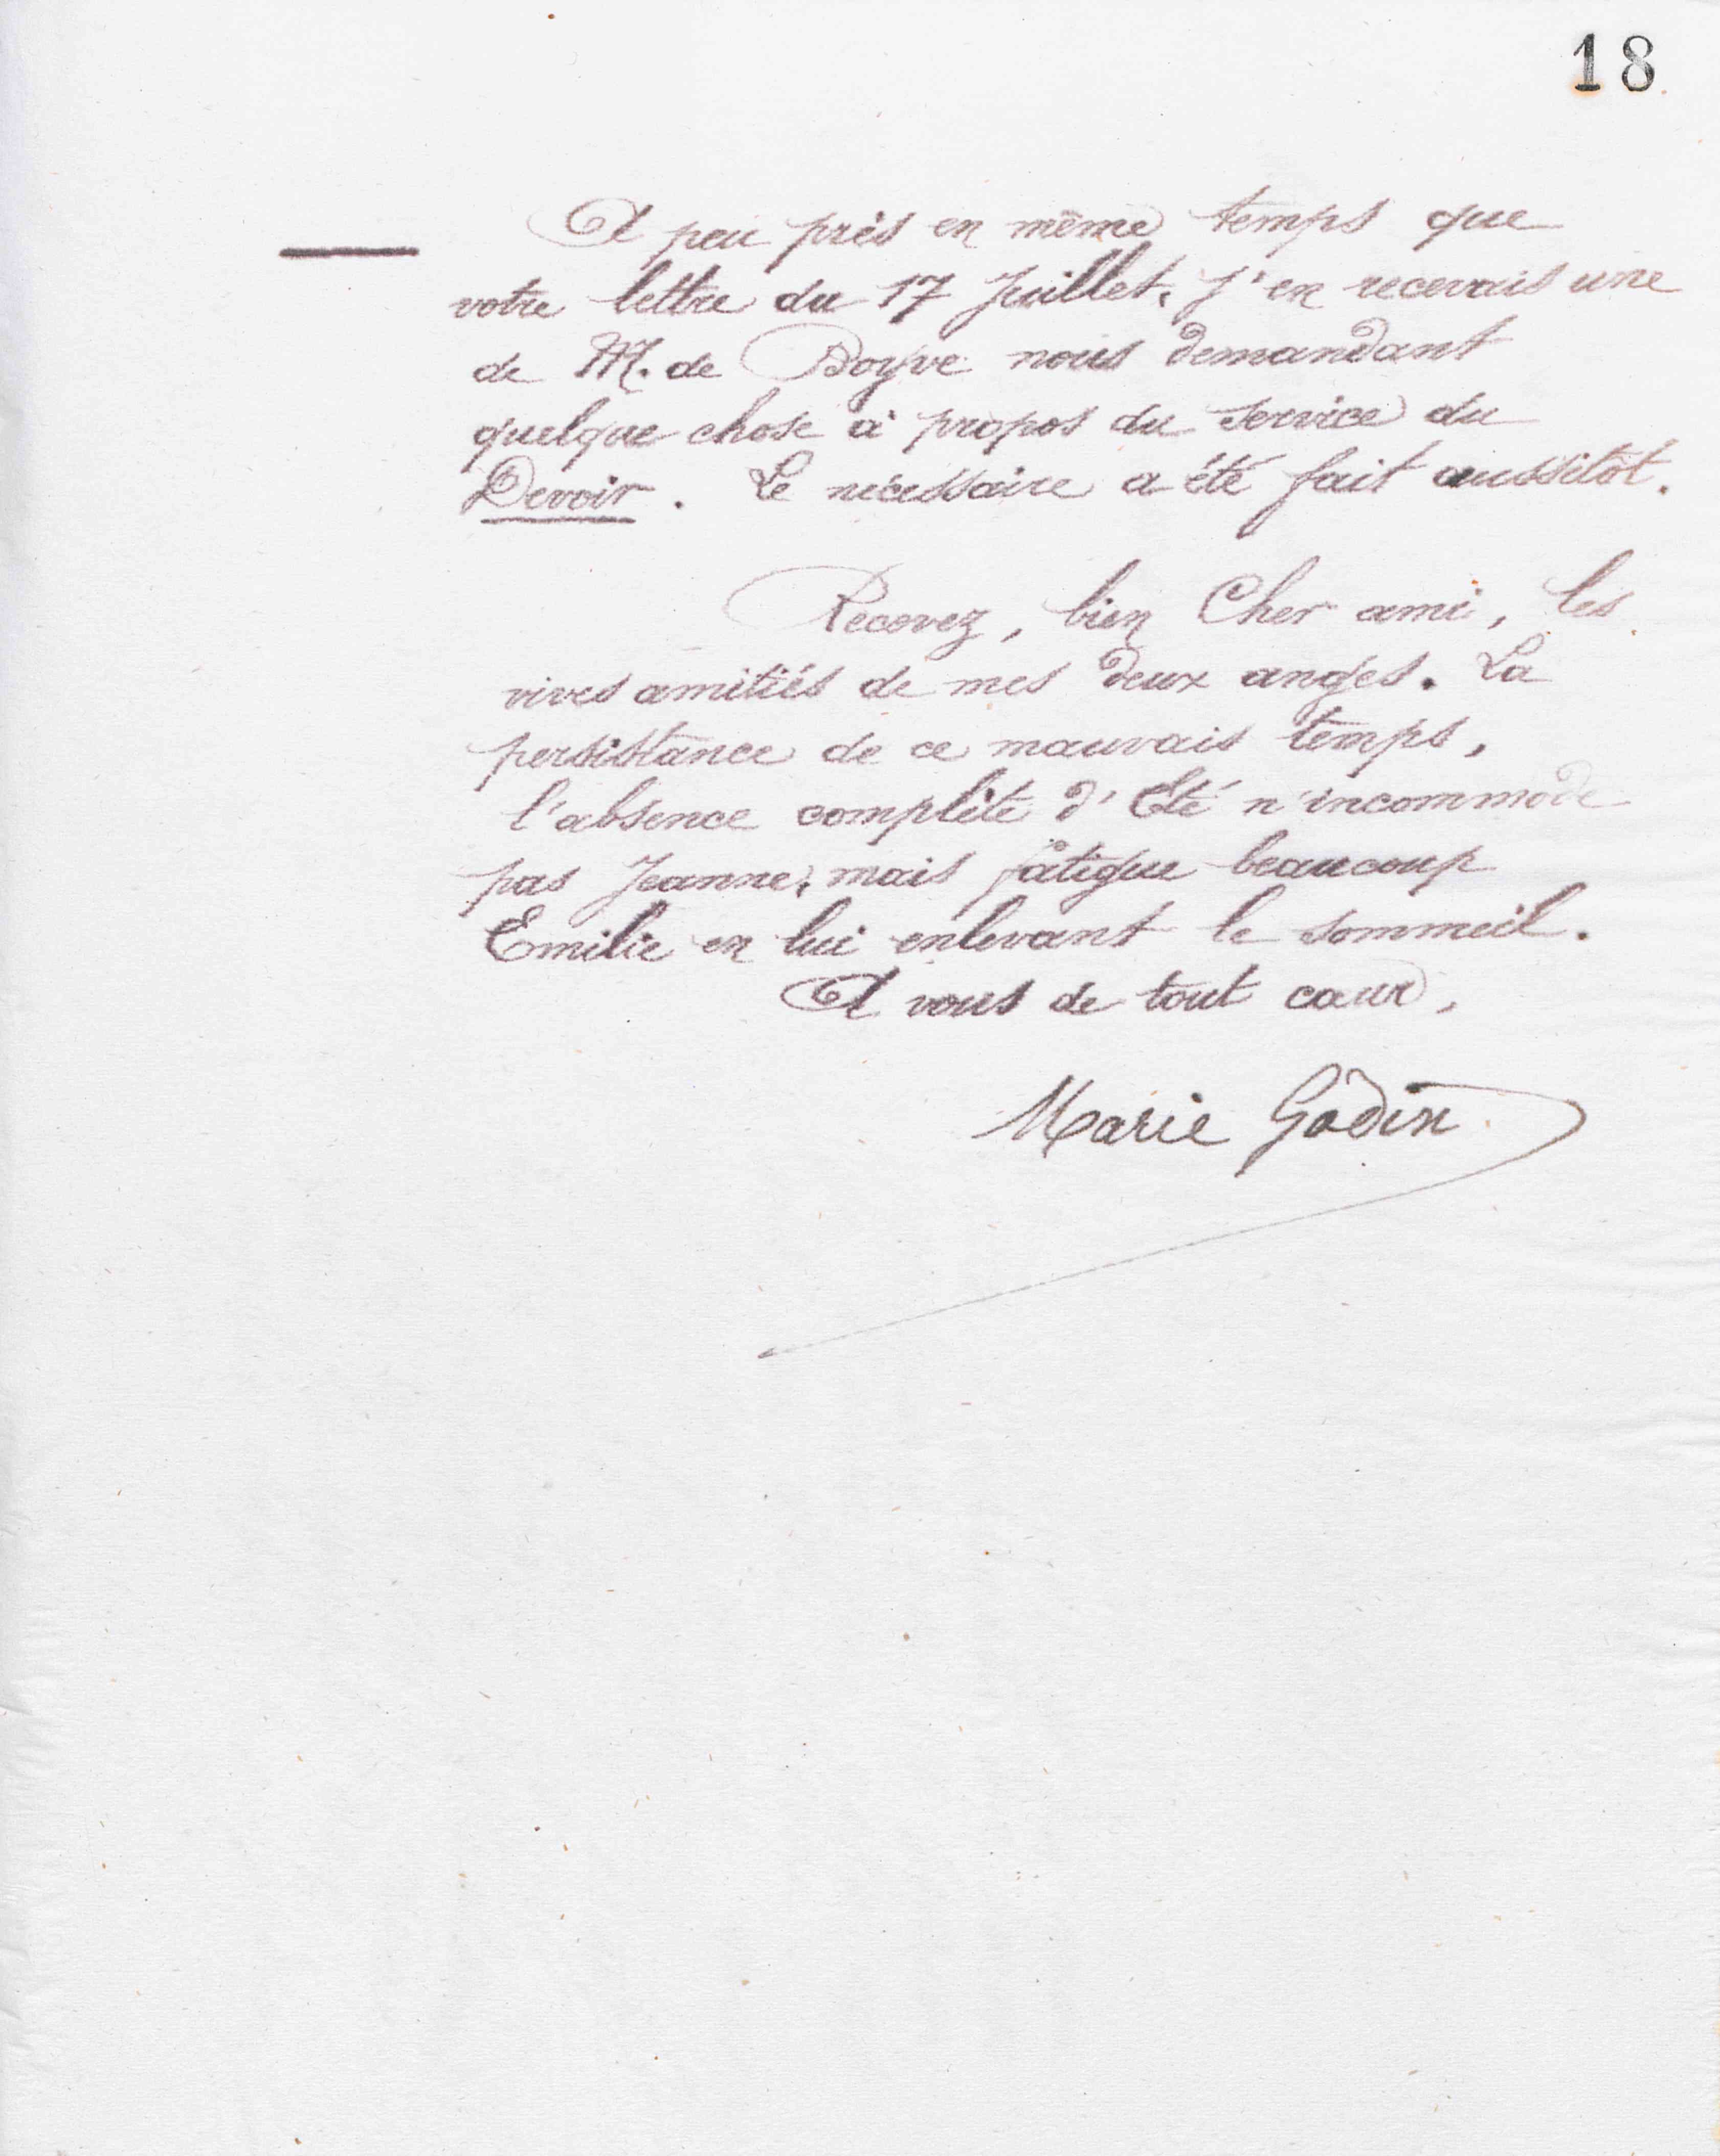 18
A peu près en même temps que
votre lettre du 17 Juillet, j'en recevais une
de M. de Boyve nous demandant
quelque chose à propos du service du
Devoir. Le nécessaire a été fait aussitôt.
Recevez, bien Cher ami, les
vives amitiés de mes deux anges. La
persistance de ce mauvais temps,
l'absence complète d'Été n'incommode
pas Jeanne, mais fatigue beaucoup
Emilie en lui enlevant le sommeil.
A vous de tout cœur,
Marie Godin